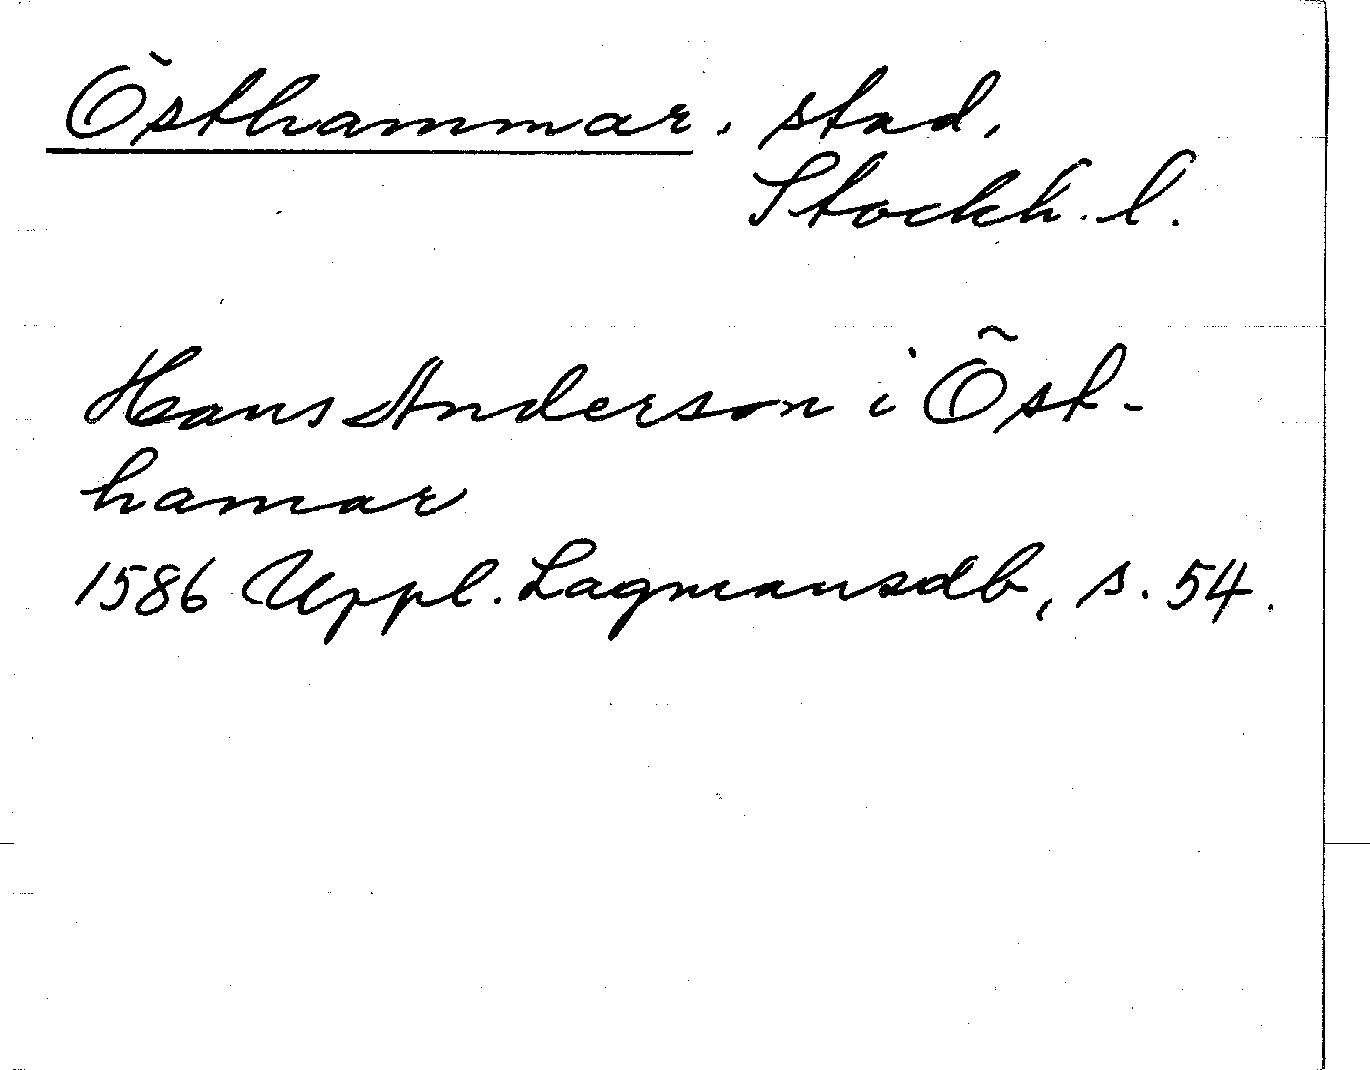 Östhammar, stad,
Stockh. l.
Hans Anderson i Öst-
hamar
1586 Uppl. Lagmansdb, s. 54.